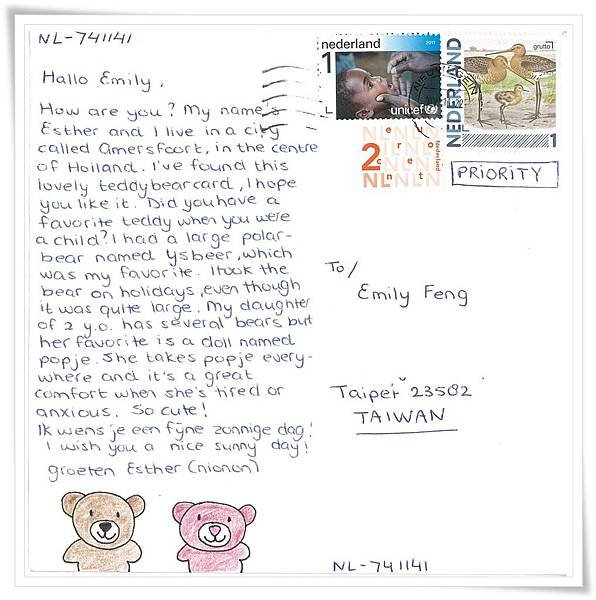 NL-741141
Hallo Emily,
How are you? My name's
Esther and I live in a city
called Amersfoort, in the centre
of Holland. I've found this
lovely teddybearcard, I hope
you like it. Did you have a
favorite teddy when you were
a child? I had a large polar-
bear named Ysbeer, which
was my favorite. I took the
bear on holidays, even though
it was quite large. My daughter
of 2 y.o. has several bears but
her favorite is a doll named
popje. She takes popje every-
where and it's a great
comfort when she's tired or
anxious. So cute!
Ik wens je een fijne zonnige dag!
I wish you a nice sunny day!
groeten Esther (nionon)
nederland
2011
1
unicef
NEDERLAND
grutto
1
2
euro
cent
Nederland
NLNLNLN
PRIORITY
To/
Emily Feng
Taipei 23502
TAIWAN
NL-741141